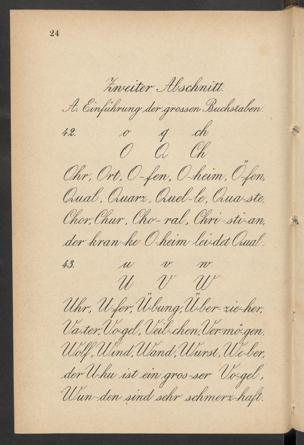 24
Zweiter Abschnitt.
A. Einführung der grossen Buchstaben.
42. o q ch
O Q Ch
Ohr, Ort, O-fen, O-heim, Ö-fen,
Qual, Quarz, Quel-le, Qua-ste,
Chor, Chur, Cho-ral, Chri-sti-an,
der kran-ke O-heim lei-det Qual.
43. u v w
U V W
Uhr, U-fer, Ü-bung, Ü-ber-zie-her,
Va-ter, Vo-gel, Veil-chen, Ver-mö-gen,
Wolf, Wind, Wand, Wurst, We-ber,
der Uhu ist ein gros-ser Vo-gel,
Wun-den sind sehr schmerz-haft.